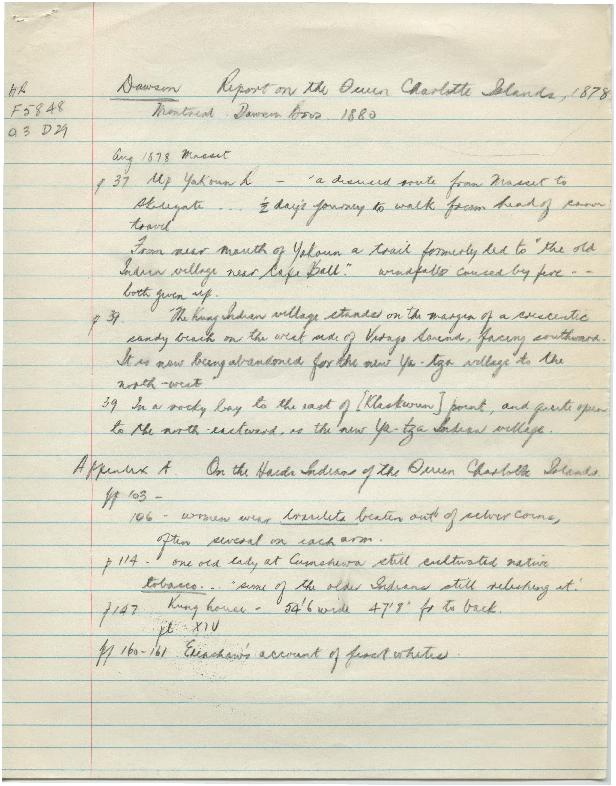 Dawson Report on the Queen Charlotte Islands, 1878
NR
F5848
a3 D29
Montreal Dawson Bros 1880
Aug 1878 Masset
p 37 Up Yakoun L - "a disused route from Masset to
Skidegate ... ½ day's journey to walk from head of canoe
travel
From near mouth of Yakoun a trail formerly led to "the old
Indian village near Cape Ball." windfalls caused by fire --
both given up.
p 39. The Kung Indian village stands on the margin of a crescentic
sandy beach on the west side of Virago Sound, facing southward.
It is now being abandoned for the new Ya-tza village to the
north-west
39 In a rocky bay to the east of [Klaskwun] point, and quite open
to the north-eastward, is the new Ya-tza Indian village.
Appendix A On the Haida Indians of the Queen Charlotte Islands
pp 103 -
106 - women wear bracelets beaten out of silver coins,
often several on each arm.
p 114 - one old lady at Cumshewa still cultivated native
tobacco... "some of the older Indians still relishing it."
p 147 Kung house - 54'6 wide 47'8" fr to back.
pl XIV
pp 160-161 Edenshaw's account of first whites.